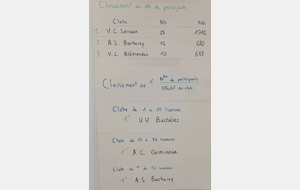 Classement au nb de participants
Clubs Nb Km
1 V.C. 23
2 A.S. Barberey 12 680
3 V.C. 10
Classement au Nbre de participants
Effectif du club
Clubs de 1 à 15 licenciés
1er U.V. Buchères
Clubs de 15 à 30 licenciés
1er A.C.
Clubs de + de 30 licenciés
1er A.S. Barberey